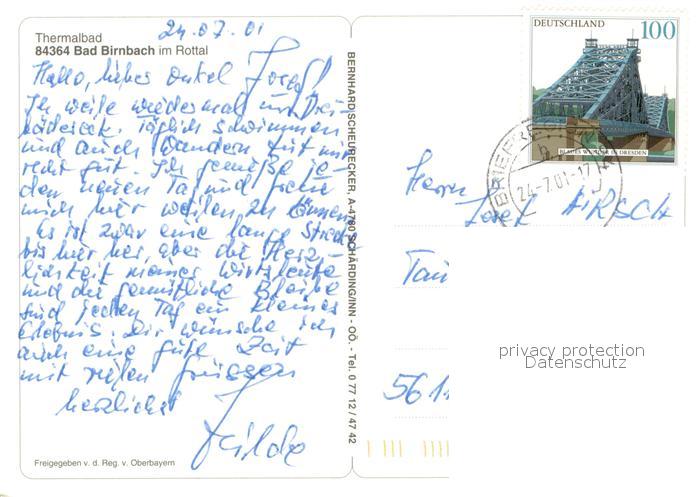 24.07.01
Thermalbad
84364 Bad Birnbach im Rottal
Hallo, lieber Onkel Josef!
Ich weile wiedermal im Drei-
bädereck. Täglich schwimmen
und auch wandern tut mir
recht gut. Ich genieße je-
den neuen Tag und freue
mich hier weilen zu können
Es ist zwar eine lange Strecke
bis hier her, aber die Herz-
lichkeit meiner Wirtsleute
und die gemütliche Bleibe
sind jeden Tag ein kleines
Erlebnis. Dir wünsche ich
auch eine gute Zeit
mit vielen Grüssen
herzlichst
Hilde
Freigegeben v. d. Reg. v. Oberbayern
BERNHARD SCHEURECKER, A-4780 SCHÄRDING/INN - OÖ. - Tel. 0 77 12 / 47 42
DEUTSCHLAND 100
BLAUES WUNDER DRESDEN
24.-7.01-17
Herrn
Josef HIRSCH
privacy protection
Datenschutz